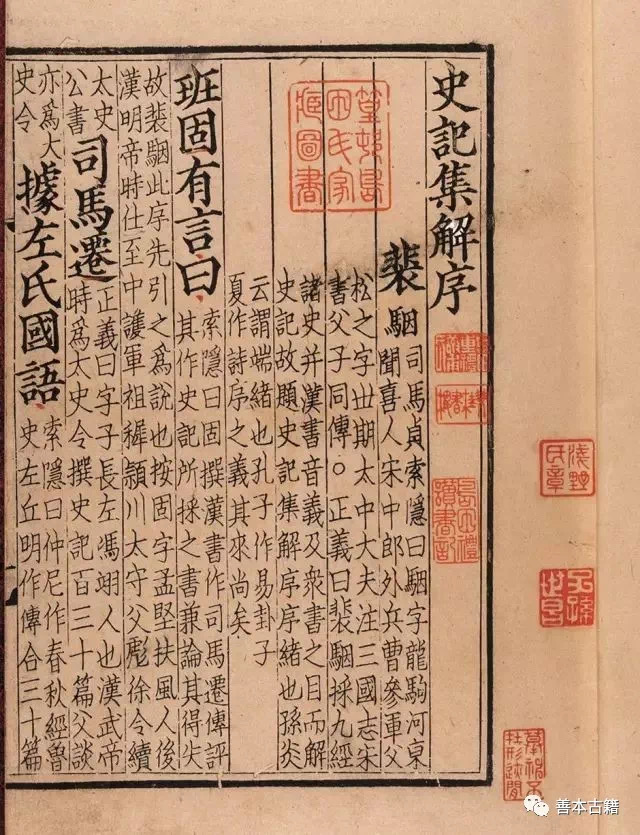 史記集解序
裴駰
司馬貞索隱曰駰字龍駒河東
聞喜人宋中郎外兵曹參軍父
松之字丗期太中大夫注三國志宋
書父子同傳○正義曰裴駰採九經
諸史并漢書音義及衆書之目而解
史記故題史記集解序序緒也孫炎
云謂端緒也孔子作易卦子
夏作詩序之義其來尚矣
班固有言曰
索隱曰固撰漢書作司馬遷傳評
其作史記所採之書兼論其得失
故裴駰此序先引之爲說也按固字孟堅扶風人後
漢明帝時仕至中護軍祖穉潁川太守父彪徐令續
太史
公書
司馬遷
正義曰字子長左馮翊人也漢武帝
時爲太史令撰史記百三十篇父談
亦爲太
史令
據左氏國語
索隱曰仲尼作春秋經魯
史左丘明作傳合三十篇
篁邨島
田氏家
藏圖書
淺野
氏章
善本古籍